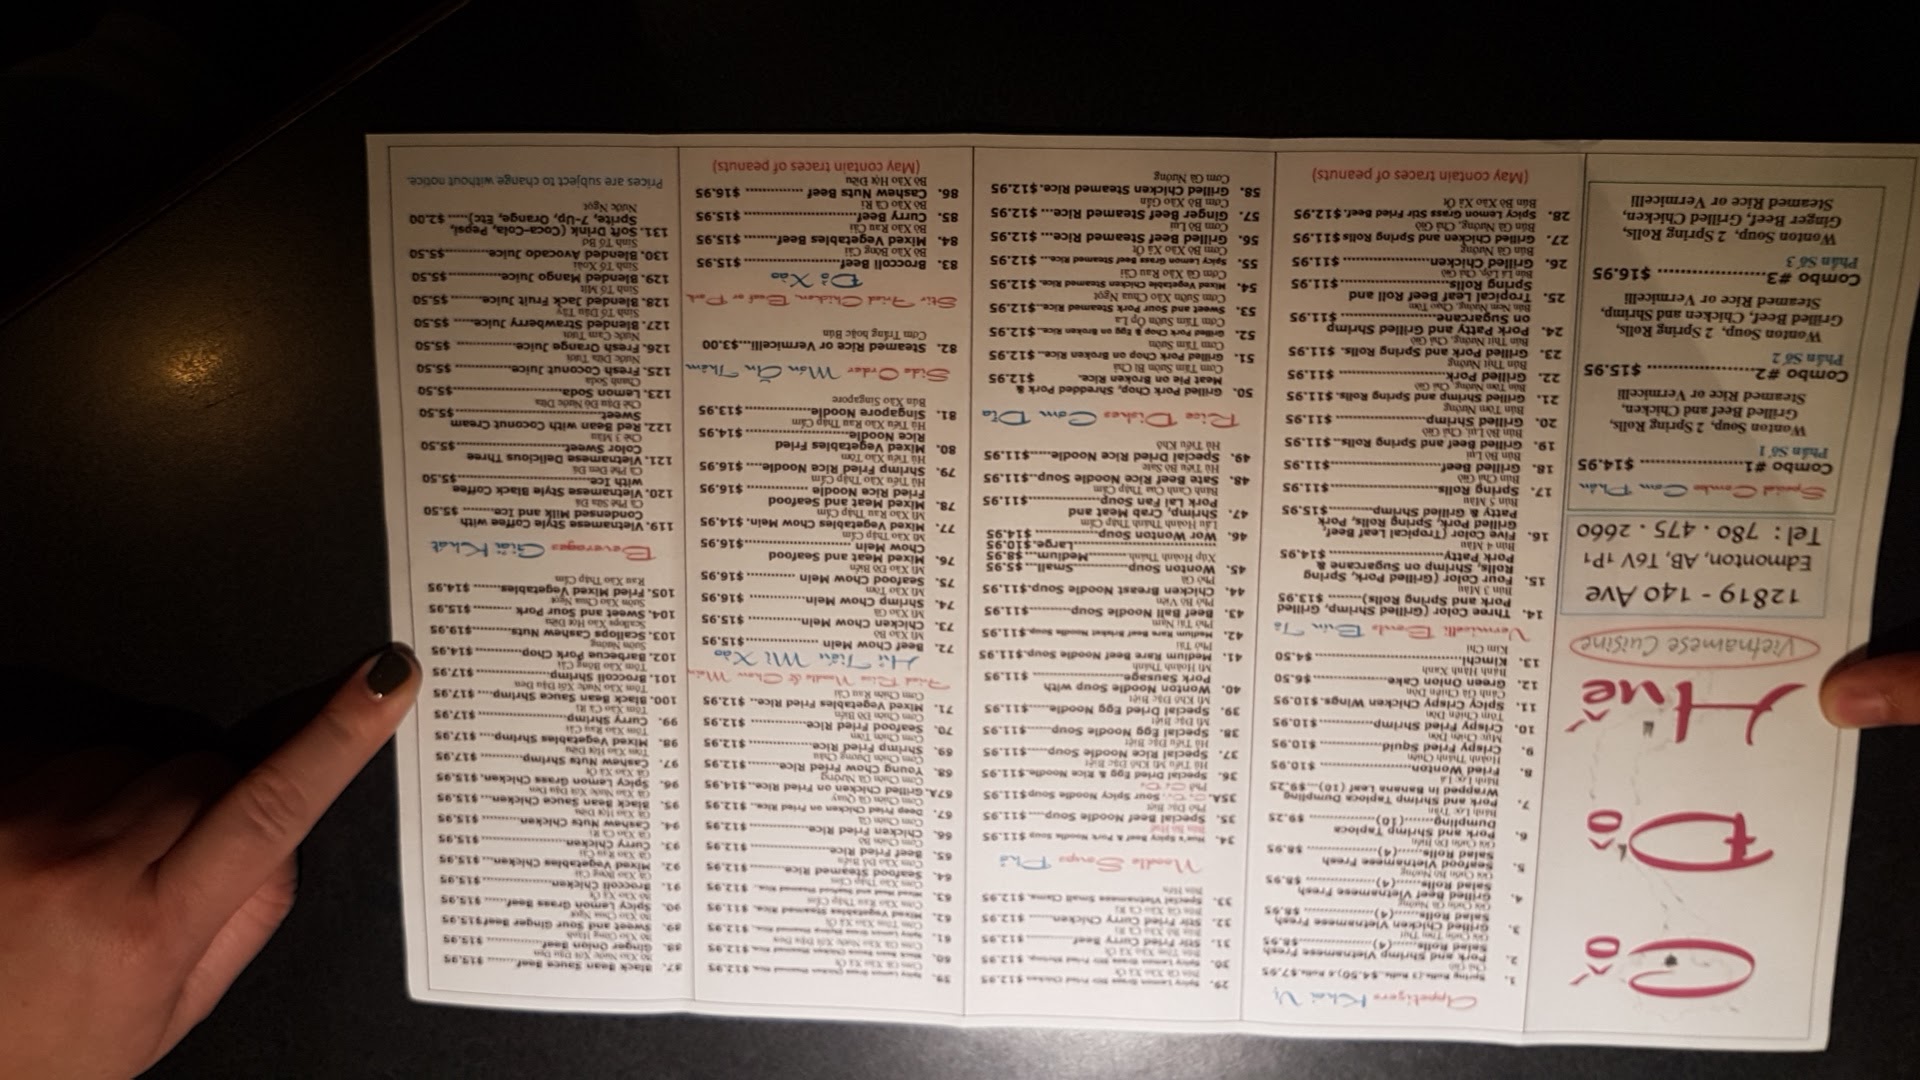 Cố Đô
Huế
Vietnamese Cuisine
12819 - 140 Ave
Edmonton, AB, T6V 1P1
Tel: 780 . 475 . 2660
Special Combo Cơm Phần
Combo #1 $14.95
Phần Số 1
Wonton Soup, 2 Spring Rolls,
Grilled Beef and Chicken,
Steamed Rice or Vermicelli
Combo #2 $15.95
Phần Số 2
Wonton Soup, 2 Spring Rolls,
Grilled Beef, Chicken and Shrimp,
Steamed Rice or Vermicelli
Combo #3 $16.95
Phần Số 3
Wonton Soup, 2 Spring Rolls,
Ginger Beef, Grilled Chicken,
Steamed Rice or Vermicelli
Appetizers Khai Vị
1. Spring Rolls
Chả Giò
2. Pork and Shrimp Vietnamese Fresh
Salad Rolls (4) $8.95
Gỏi Cuốn Tôm Thịt
3. Grilled Chicken Vietnamese Fresh
Salad Rolls (4) $8.95
4. Grilled Beef Vietnamese Fresh
Salad Rolls (4) $8.95
Gỏi Cuốn Bò Nướng
5. Seafood Vietnamese Fresh
Salad Rolls (4) $8.95
Gỏi Cuốn Đồ Biển
6. Pork and Shrimp Tapioca
Dumpling (10) $9.25
Bánh Bột Lọc Trần
7. Pork and Shrimp Tapioca Dumpling
Wrapped in Banana Leaf (10) $9.25
Bánh Lọc Lá
8. Fried Wonton $10.95
Hoành Thánh Chiên
9. Crispy Fried Squid $10.95
Mực Chiên Dòn
10. Crispy Fried Shrimp $10.95
Tôm Chiên Dòn
11. Spicy Crispy Chicken Wings. $10.95
Cánh Gà Chiên Dòn
12. Green Onion Cake $6.50
Bánh Hành Xanh
13. Kimchi $4.50
Kim Chi
Vermicelli Bowls Bún Tô
14. Three Color (Grilled Shrimp, Grilled
Pork and Spring Rolls) $13.95
Bún 3 Màu
15. Four Color (Grilled Pork, Spring
Rolls, Shrimp on Sugarcane &
Pork Patty $14.95
Bún 4 Màu
16. Five Color (Tropical Leaf Beef,
Grilled Pork, Spring Rolls, Pork
Patty & Grilled Shrimp $15.95
Bún 5 Màu
17. Spring Rolls $11.95
Bún Chả Giò
18. Grilled Beef $11.95
Bún Bò Lụi
19. Grilled Beef and Spring Rolls $11.95
Bún Bò Lụi, Chả Giò
20. Grilled Shrimp $11.95
Bún Tôm Nướng
21. Grilled Shrimp and Spring Rolls. $11.95
Bún Tôm Nướng, Chả Giò
22. Grilled Pork $11.95
Bún Thịt Nướng
23. Grilled Pork and Spring Rolls. $11.95
Bún Thịt Nướng, Chả Giò
24. Pork Patty and Grilled Shrimp
on Sugarcane $11.95
Bún Nem Nướng, Chạo Tôm
25. Tropical Leaf Beef Roll and
Spring Rolls $11.95
Bún Lá Lốp, Chả Giò
26. Grilled Chicken $11.95
Bún Gà Nướng
27. Grilled Chicken and Spring Rolls $11.95
Bún Gà Nướng, Chả Giò
28. Spicy Lemon Grass Stir Fried Beef. $12.95
Bún Bò Xào Xả Ớt
(May contain traces of peanuts)
29. Spicy Lemon Grass Stir Fried Chicken $12.95
30. Spicy Lemon Grass Stir Fried Shrimp. $12.95
31. Stir Fried Curry Beef $12.95
Bún Bò Xào Cà Ri
32. Stir Fried Curry Chicken $12.95
Bún Gà Xào Cà Ri
33. Special Vietnamese Small Clams. $12.95
Bún Hến
Noodle Soups Phở
34. Hue's Spicy Beef & Pork Noodle Soup $11.95
Bún Bò Huế
35. Special Beef Noodle Soup $11.95
Phở Đặc Biệt
35A. Sour Spicy Noodle Soup $11.95
36. Special Dried Egg & Rice Noodle. $11.95
Hủ Tiếu Mì Khô Đặc Biệt
37. Special Rice Noodle Soup $11.95
Hủ Tiếu Đặc Biệt
38. Special Egg Noodle Soup $11.95
Mì Đặc Biệt
39. Special Dried Egg Noodle $11.95
Mì Khô Đặc Biệt
40. Wonton Noodle Soup with
Pork Sausage $11.95
Mì Hoành Thánh
41. Medium Rare Beef Noodle Soup $11.95
Phở Tái
42. Medium Rare Beef Brisket Noodle Soup. $11.95
Phở Tái Nạm
43. Beef Ball Noodle Soup $11.95
Phở Bò Viên
44. Chicken Breast Noodle Soup. $11.95
Phở Gà
45. Wonton Soup Small $5.95
Súp Hoành Thánh Medium $8.95
Large. $10.95
46. Wor Wonton Soup $14.95
Lẩu Hoành Thánh Thập Cẩm
47. Shrimp, Crab Meat and
Pork Lai Fan Soup $11.95
Bánh Canh Cua Thập Cẩm
48. Sate Beef Rice Noodle Soup $11.95
Hủ Tiếu Bò Sate
49. Special Dried Rice Noodle $11.95
Hủ Tiếu Khô
Rice Dishes Cơm Dĩa
50. Grilled Pork Chop, Shredded Pork &
Meat Pie on Broken Rice. $12.95
Cơm Tấm Sườn Bì Chả
51. Grilled Pork Chop on Broken Rice $12.95
Cơm Tấm Sườn
52. Grilled Pork Chop & Egg on Broken Rice $12.95
Cơm Tấm Sườn Ốp La
53. Sweet and Sour Pork Steamed Rice $12.95
Cơm Sườn Xào Chua Ngọt
54. Mixed Vegetable Chicken Steamed Rice. $12.95
Cơm Gà Xào Rau Cải
55. Spicy Lemon Grass Beef Steamed Rice $12.95
Cơm Bò Xào Xả Ớt
56. Grilled Beef Steamed Rice $12.95
Cơm Bò Lụi
57. Ginger Beef Steamed Rice $12.95
58. Grilled Chicken Steamed Rice. $12.95
Cơm Gà Nướng
59. Spicy Lemon Grass Chicken Steamed Rice $12.95
60. Black Bean Sauce Chicken Steamed Rice. $12.95
61. Spicy Lemon Grass Shrimp Steamed Rice. $12.95
62. Mixed Vegetables Steamed Rice. $11.95
63. Mixed Meat and Seafood Steamed Rice $12.95
64. Seafood Steamed Rice $12.95
65. Beef Fried Rice $12.95
Cơm Chiên Bò
66. Chicken Fried Rice $12.95
Cơm Chiên Gà
67. Deep Fried Chicken on Fried Rice $12.95
Cơm Chiên Gà Quay
67A. Grilled Chicken on Fried Rice $14.95
Cơm Chiên Gà Nướng
68. Young Chow Fried Rice $12.95
Cơm Chiên Dương Châu
69. Shrimp Fried Rice $12.95
Cơm Chiên Tôm
70. Seafood Fried Rice $12.95
Cơm Chiên Đồ Biển
71. Mixed Vegetables Fried Rice $12.95
Cơm Chiên Rau Cải
Fried Rice Noodle & Chow Mein
Hủ Tiếu Mì Xào
72. Beef Chow Mein $15.95
Mì Xào Bò
73. Chicken Chow Mein $15.95
Mì Xào Gà
74. Shrimp Chow Mein $16.95
Mì Xào Tôm
75. Seafood Chow Mein $16.95
Mì Xào Đồ Biển
76. Mixed Meat and Seafood
Chow Mein $16.95
Mì Xào Thập Cẩm
77. Mixed Vegetables Chow Mein. $14.95
Mì Xào Rau Thập Cẩm
78. Mixed Meat and Seafood
Fried Rice Noodle $16.95
Hủ Tiếu Xào Thập Cẩm
79. Shrimp Fried Rice Noodle $16.95
Hủ Tiếu Xào Tôm
80. Mixed Vegetables Fried
Rice Noodle $14.95
Hủ Tiếu Xào Rau Thập Cẩm
81. Singapore Noodle $13.95
Bún Xào Singapore
Side Order Món Ăn Thêm
82. Steamed Rice or Vermicelli $3.00
Cơm Trắng hoặc Bún
Stir Fried Chicken, Beef or Pork
Đồ Xào
83. Broccoli Beef $15.95
Bò Xào Bông Cải
84. Mixed Vegetables Beef $15.95
Bò Xào Rau Cải
85. Curry Beef $15.95
Bò Xào Cà Ri
86. Cashew Nuts Beef $16.95
Bò Xào Hột Điều
(May contain traces of peanuts)
87. Black Bean Sauce Beef $15.95
88. Ginger Onion Beef $15.95
89. Sweet and Sour Ginger Beef $15.95
90. Spicy Lemon Grass Beef $15.95
Bò Xào Xả Ớt
91. Broccoli Chicken $15.95
Gà Xào Bông Cải
92. Mixed Vegetables Chicken $15.95
Gà Xào Rau Cải
93. Curry Chicken $15.95
Gà Xào Cà Ri
94. Cashew Nuts Chicken $15.95
Gà Xào Hột Điều
95. Black Bean Sauce Chicken $15.95
Gà Xào Nước Xốt Đậu Đen
96. Spicy Lemon Grass Chicken. $15.95
Gà Xào Xả Ớt
97. Cashew Nuts Shrimp $17.95
Tôm Xào Hột Điều
98. Mixed Vegetables Shrimp $17.95
Tôm Xào Rau Cải
99. Curry Shrimp $17.95
Tôm Xào Cà Ri
100. Black Bean Sauce Shrimp $17.95
Tôm Xào Nước Xốt Đậu Đen
101. Broccoli Shrimp $17.95
Tôm Xào Bông Cải
102. Barbecue Pork Chop $14.95
Sườn Nướng
103. Scallops Cashew Nuts $19.95
Scallops Xào Hột Điều
104. Sweet and Sour Pork $15.95
Sườn Xào Chua Ngọt
105. Fried Mixed Vegetables $14.95
Rau Xào Thập Cẩm
Beverages Giải Khát
119. Vietnamese Style Coffee with
Condensed Milk and Ice $5.50
Cà Phê Sữa Đá
120. Vietnamese Style Black Coffee
with Ice $5.50
Cà Phê Đen Đá
121. Vietnamese Delicious Three
Color Sweet $5.50
Chè 3 Màu
122. Red Bean with Coconut Cream
Sweet $5.50
Chè Đậu Đỏ Nước Dừa
123. Lemon Soda $5.50
Chanh Soda
125. Fresh Coconut Juice $5.50
Nước Dừa Tươi
126. Fresh Orange Juice $5.50
Nước Cam Tươi
127. Blended Strawberry Juice $5.50
Sinh Tố Dâu Tây
128. Blended Jack Fruit Juice $5.50
Sinh Tố Mít
129. Blended Mango Juice $5.50
Sinh Tố Xoài
130. Blended Avocado Juice $5.50
Sinh Tố Bơ
131. Soft Drink (Coca-Cola, Pepsi,
Sprite, 7-Up, Orange, Etc) $2.00
Nước Ngọt
Prices are subject to change without notice.